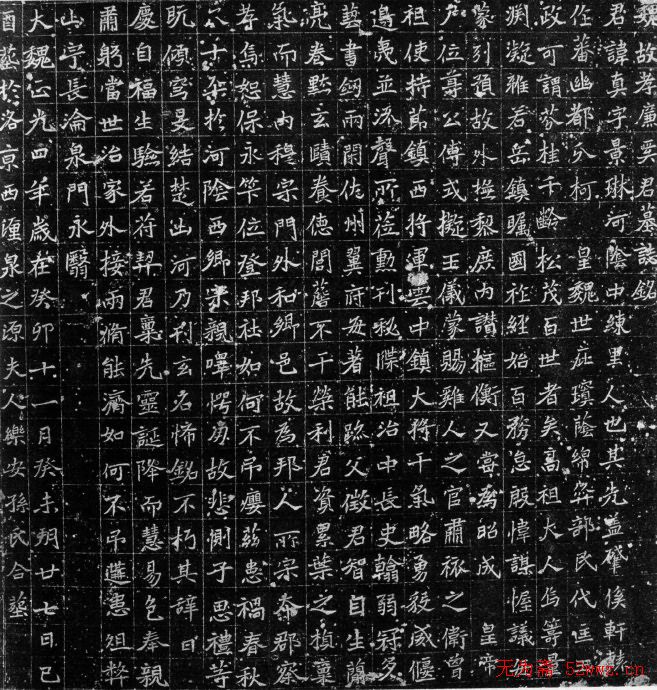 魏故孝廉奚君墓誌銘
君諱真字景琳河陰中練里人也其先蓋肇傒軒轅
作蕃幽都分柯 皇魏世庇瓊蔭綿弈部民代匡王
政可謂芬桂千齡松茂百世者矣高祖大人烏籌量
淵凝雅若岳鎮矚國祚經始百務怠殷幃謀幄議僉
蒙列預故外撫黎庶內讃樞衡又嘗為昭成 皇帝
尸位尊公傅式擬王儀蒙賜雞人之官肅旅之衛曾
祖使持節鎮西將軍雲中鎮大將干氣略勇毅威偃
邊夷並流聲所莅勳刊秘牒祖治中長史翰弱冠多
藝書劒兩閑佐州翼府每著能跡父徵君智自生簡
亮卷默玄賾養德閭蘆不干榮利君資累葉之楨稟
氣而慧內穆宗門外和鄉邑故為邦人所宗本郡察
孝焉恕保永年位登邦社如何不弔麇茲患禍春秋
六十卒於河陰西鄉宗親嚀愕朋故悲惻子思禮等
既傾穹旻結楚山河乃刊玄石怖銘不朽其辭曰
慶自福生驗若符契君稟先靈誕降而慧易色奉親
肅躬當世治家外接兩脩能濟如何不弔遘患徂弊
山宇長淪泉門永翳
大魏正光四年歲在癸卯十一月癸未朔廿七日己
酉葬於洛京西瀍泉之源夫人樂安孫氏合葬
无为斋 52wwz.cn